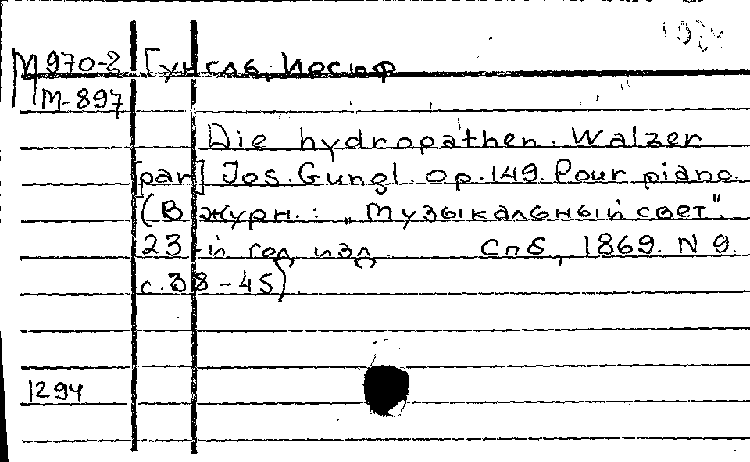 М970-2 Гунгль, Иосиф
М-897
Die hydropathen. Walzer
[par] Jos. Gungl. Op. 149. Pour piano.
(В журн.: „Музыкальный свет".
23-й год изд. Спб, 1869. N 9.
с. 38-45).
1294